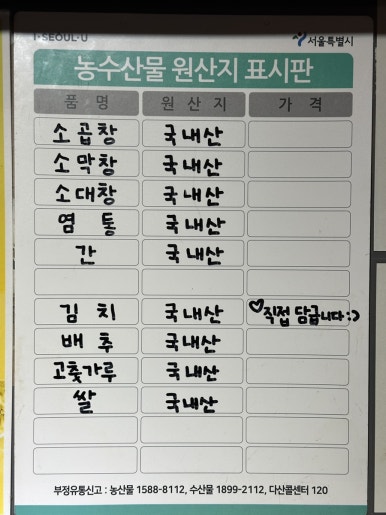 I·SEOUL·U 서울특별시
농수산물 원산지 표시판
품 명 원 산 지 가 격
소곱창 국내산
소막창 국내산
소대창 국내산
염 통 국내산
간 국내산
김 치 국내산 ♡직접 담급니다 :)
배 추 국내산
고춧가루 국내산
쌀 국내산
부정유통신고 : 농산물 1588-8112, 수산물 1899-2112, 다산콜센터 120